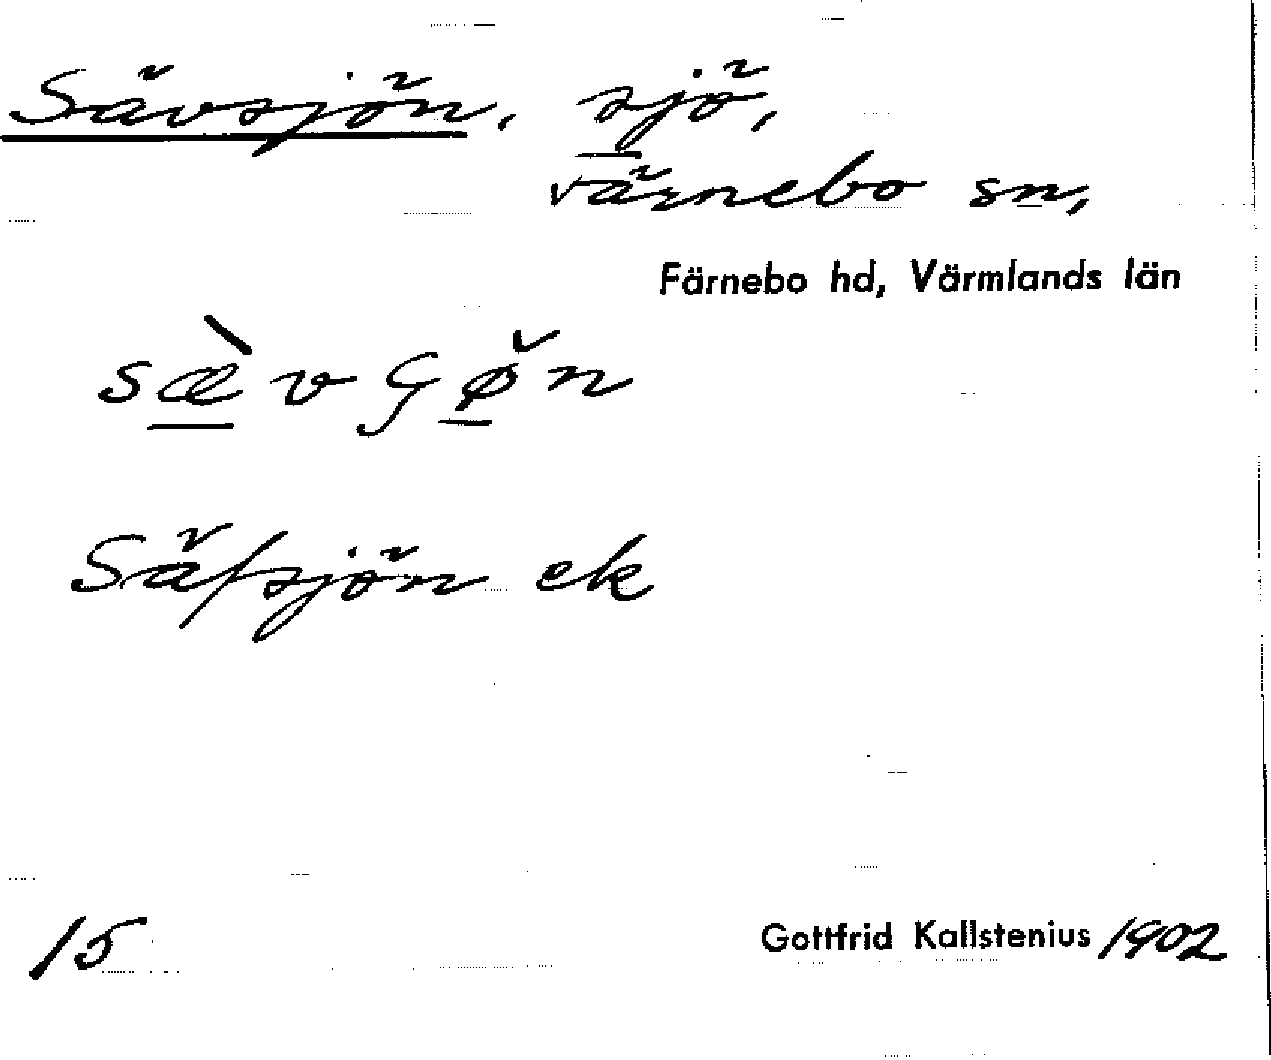 Sävsjön, sjö,
Värnebo sn,
Färnebo hd, Värmlands län
sæ̀vçø̌n
Säfsjön ek
15
Gottfrid Kallstenius 1902